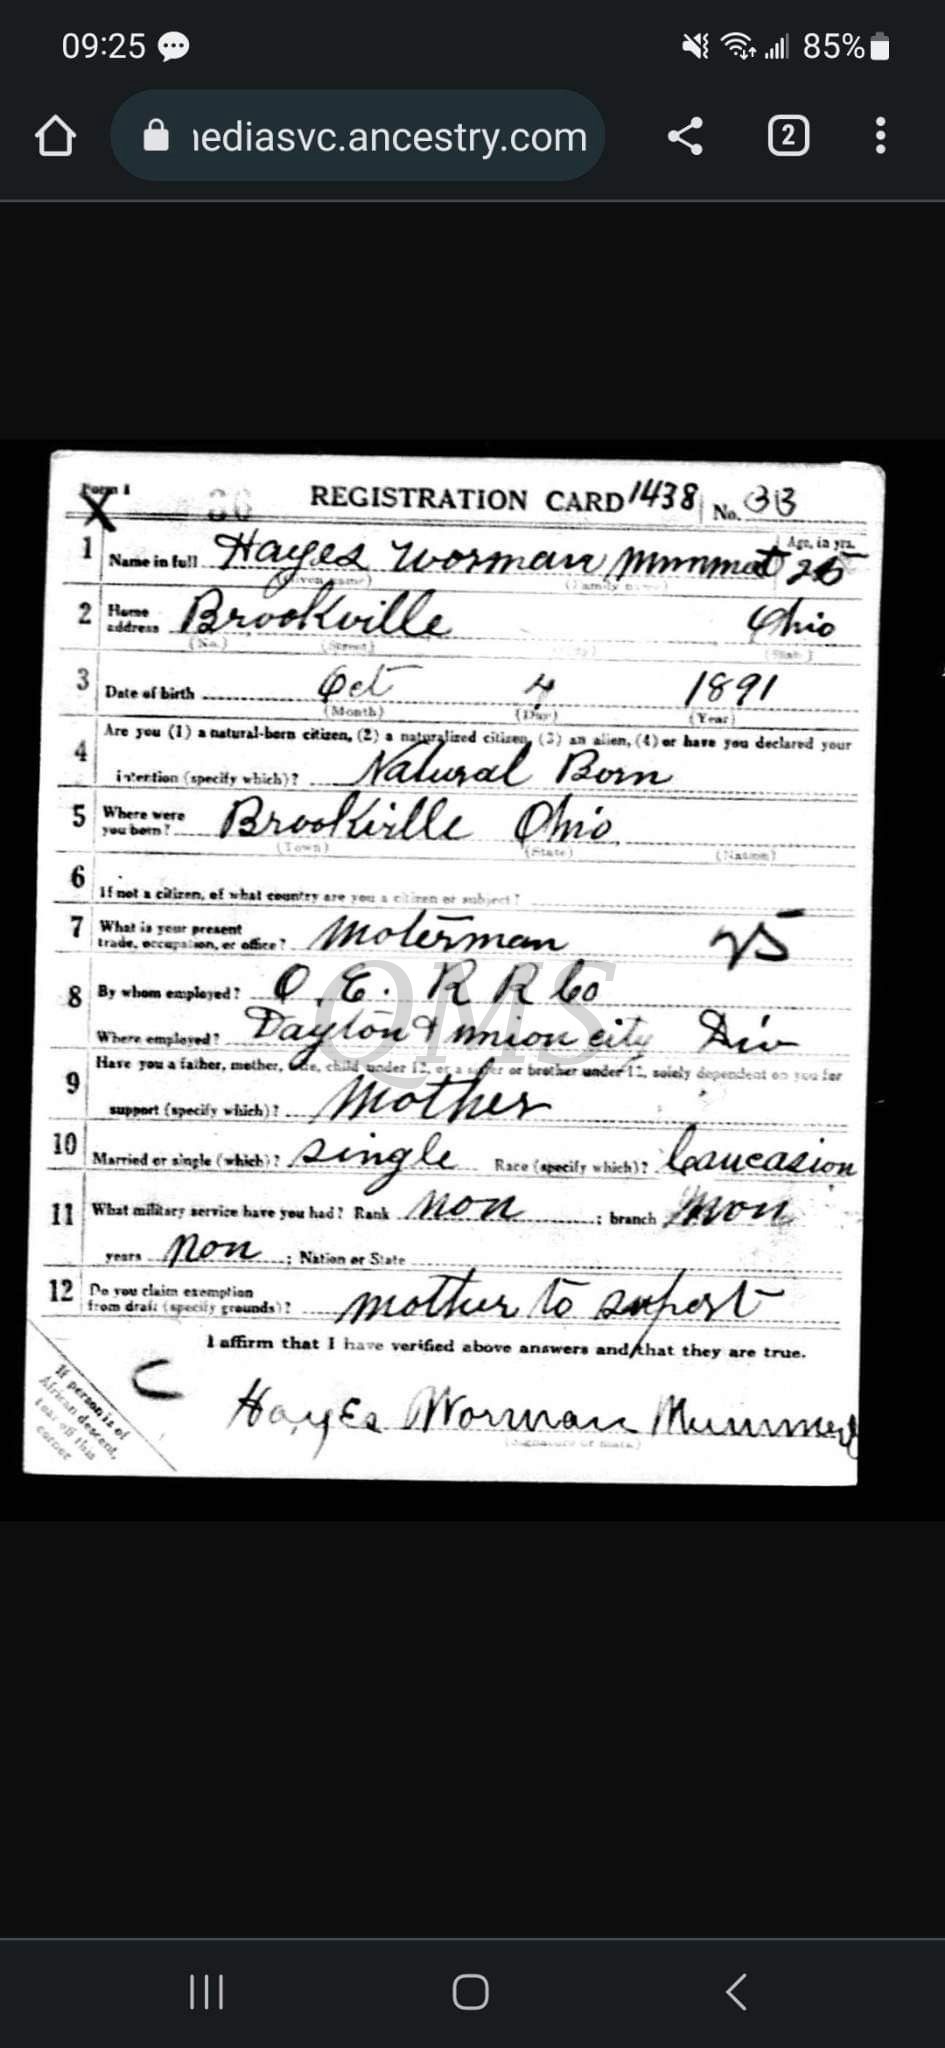 09:25
85%
nediasvc.ancestry.com
2
Form 1
REGISTRATION CARD 1438 No. 33
1 Name in full Hayes Worman Mummert Age, in yrs. 25
(Given name) (Family name)
2 Home address Brookville Ohio
(No.) (Street) (City) (State)
3 Date of birth Oct 4 1891
(Month) (Day) (Year)
4 Are you (1) a natural-born citizen, (2) a naturalized citizen, (3) an alien, (4) or have you declared your
intention (specify which)? Natural Born
5 Where were you born? Brookville Ohio
(Town) (State) (Nation)
6 If not a citizen, of what country are you a citizen or subject?
7 What is your present trade, occupation, or office? Moterman 25
8 By whom employed? O. E. R R Co
Where employed? Dayton & union city Div
9 Have you a father, mother, wife, child under 12, or a sister or brother under 12, solely dependent on you for
support (specify which)? Mother
10 Married or single (which)? single Race (specify which)? Caucasion
11 What military service have you had? Rank non ; branch non
years non ; Nation or State
12 Do you claim exemption from draft (specify grounds)? mother to suport
I affirm that I have verified above answers and that they are true.
C
Hayes Worman Mummert
(Signature or mark)
If person is of African descent, tear off this corner
QMS